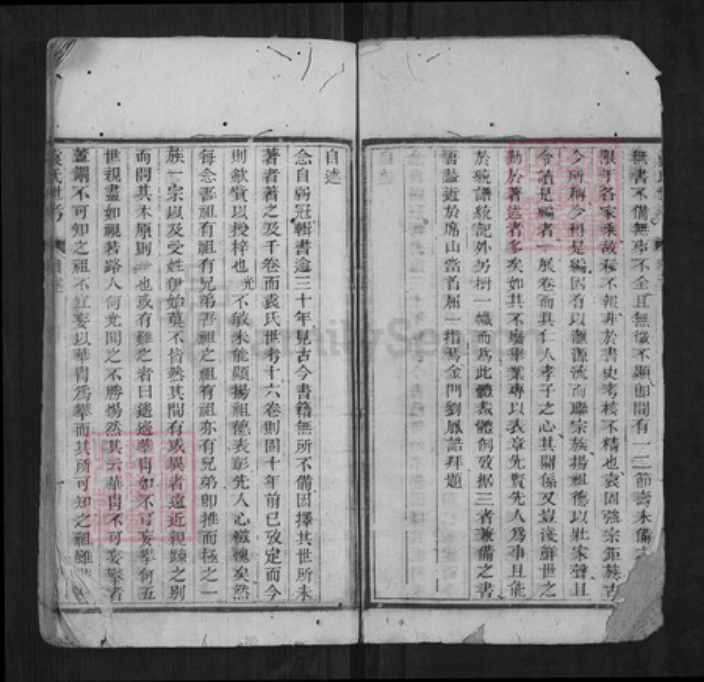 無書不備無事不全且無徵不顯即間有一二節壽未備
限于各家乘故秘不報非於書史考核不精也袁固強宗鉅族古
今所稱今稱是編因有以溯源流而聯宗族揚祖德以壯家聲且
令讀是編者一展卷而其仁人孝子之心其關係又豈淺鮮世之
勤於著述者多矣如其不廢舉業專以表章先賢先人為事且能
於統譜紋記外另樹一幟而為此體裁體例攷据三者兼備之書
吾論近於席山當首屈一指焉金門劉鳳誥拜題
自述
念自弱冠輯書逾三十年見古今書籍無所不備因擇其世所未
著者著之及千卷而袁氏世考十六卷則固十年前已攷定而今
則歛貲以授梓也光不敏未能顯揚祖德表彰先人心滋愧矣然
每念吾祖有祖有兄弟吾祖之祖有祖亦有兄弟即推而極之一
族一宗以及受姓伊始莫不皆然其間有或異者遠近親疎之別
而問其本原則一也或有難之者曰遙遙華冑如不可妄攀何五
世親盡如視若路人何光聞之不勝惕然其云華冑不可妄攀者
蓋謂不可知之祖不宜妄以華冑為攀而其所可知之祖雖
袁氏世考
FamilySearch